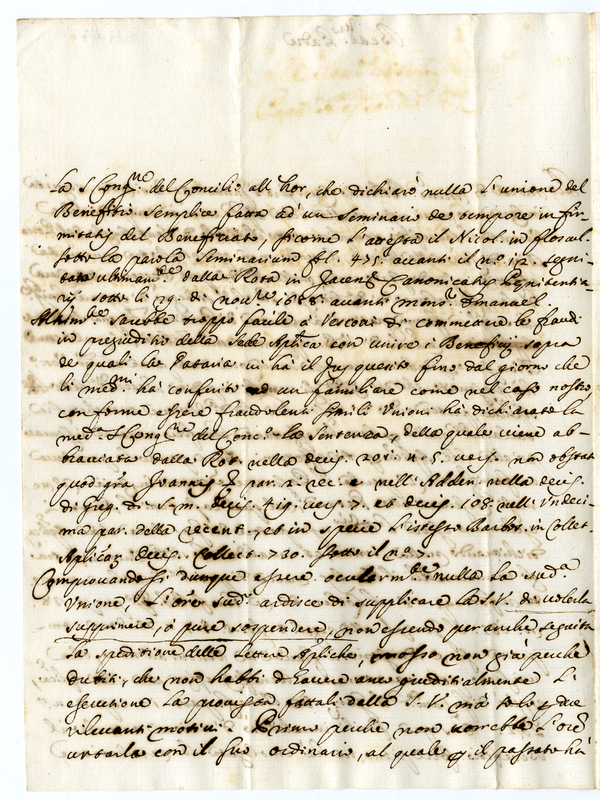 La S Cong.ne del Concilio all'hor, che dichiarò nulla l'unione del
Benefitio semplice fatta ad un Seminario de tempore infir-
mitatis del Beneficiato, sicome l'attesta il Nicol. in flosul.
sotto la parola Seminarium fol. 495. avanti il n.o 12. segui-
tato ultimam.te dalla Rota in Canonicatus Penitentia-
rij sotto li 29. di nov.re 1688 avanti mons.r Emanuel.
Altrim.te sarebbe troppo facile à Vescovi di commettere le fraudi
in pregiuditio della Sede Aplica con unire i Beneficij sopra
de quali la Dataria vi hà il Jus quesito fino dal giorno che
li med.mi hà conferito ad un familiare come nel caso nostro,
conforme essere fraudolenti simili Unioni hà dichiarato la
med.a S Cong.ne del Conc.o la sentenza, della quale viene ab-
bracciata dalla Rota nella decis. 201. n. 5. vers. non obstat
quod gra Joannis p. par. 2. rec. e nell'Adden. nella decis.
di Greg. S. m. decis. 419. vers. 7. et decis. 108. nell'Undeci-
ma par. della recent., et in specie l'istesso Barbos. in Collet.
Aplicar. decis. Collect. 730. sotto il n.o 7.
Comprovandosi dunque essere ocularm.te nulla la sud.a
Unione, l'Ore sud.o ardisce di supplicare la S.V. di volerla
supprimere, ò pure sospendere, non essendo per anche seguita
la speditione delle lettere Apliche, mosso non già perche
dubiti, che non habbi d'havere anco giuditialmente l'
esecutione la provista fattali dalla S.V. mà solo p. due
rilevanti motivi. Primo perche non vorrebbe l'Ore
urtarla con il suo ordinario, al quale p. il passato hà